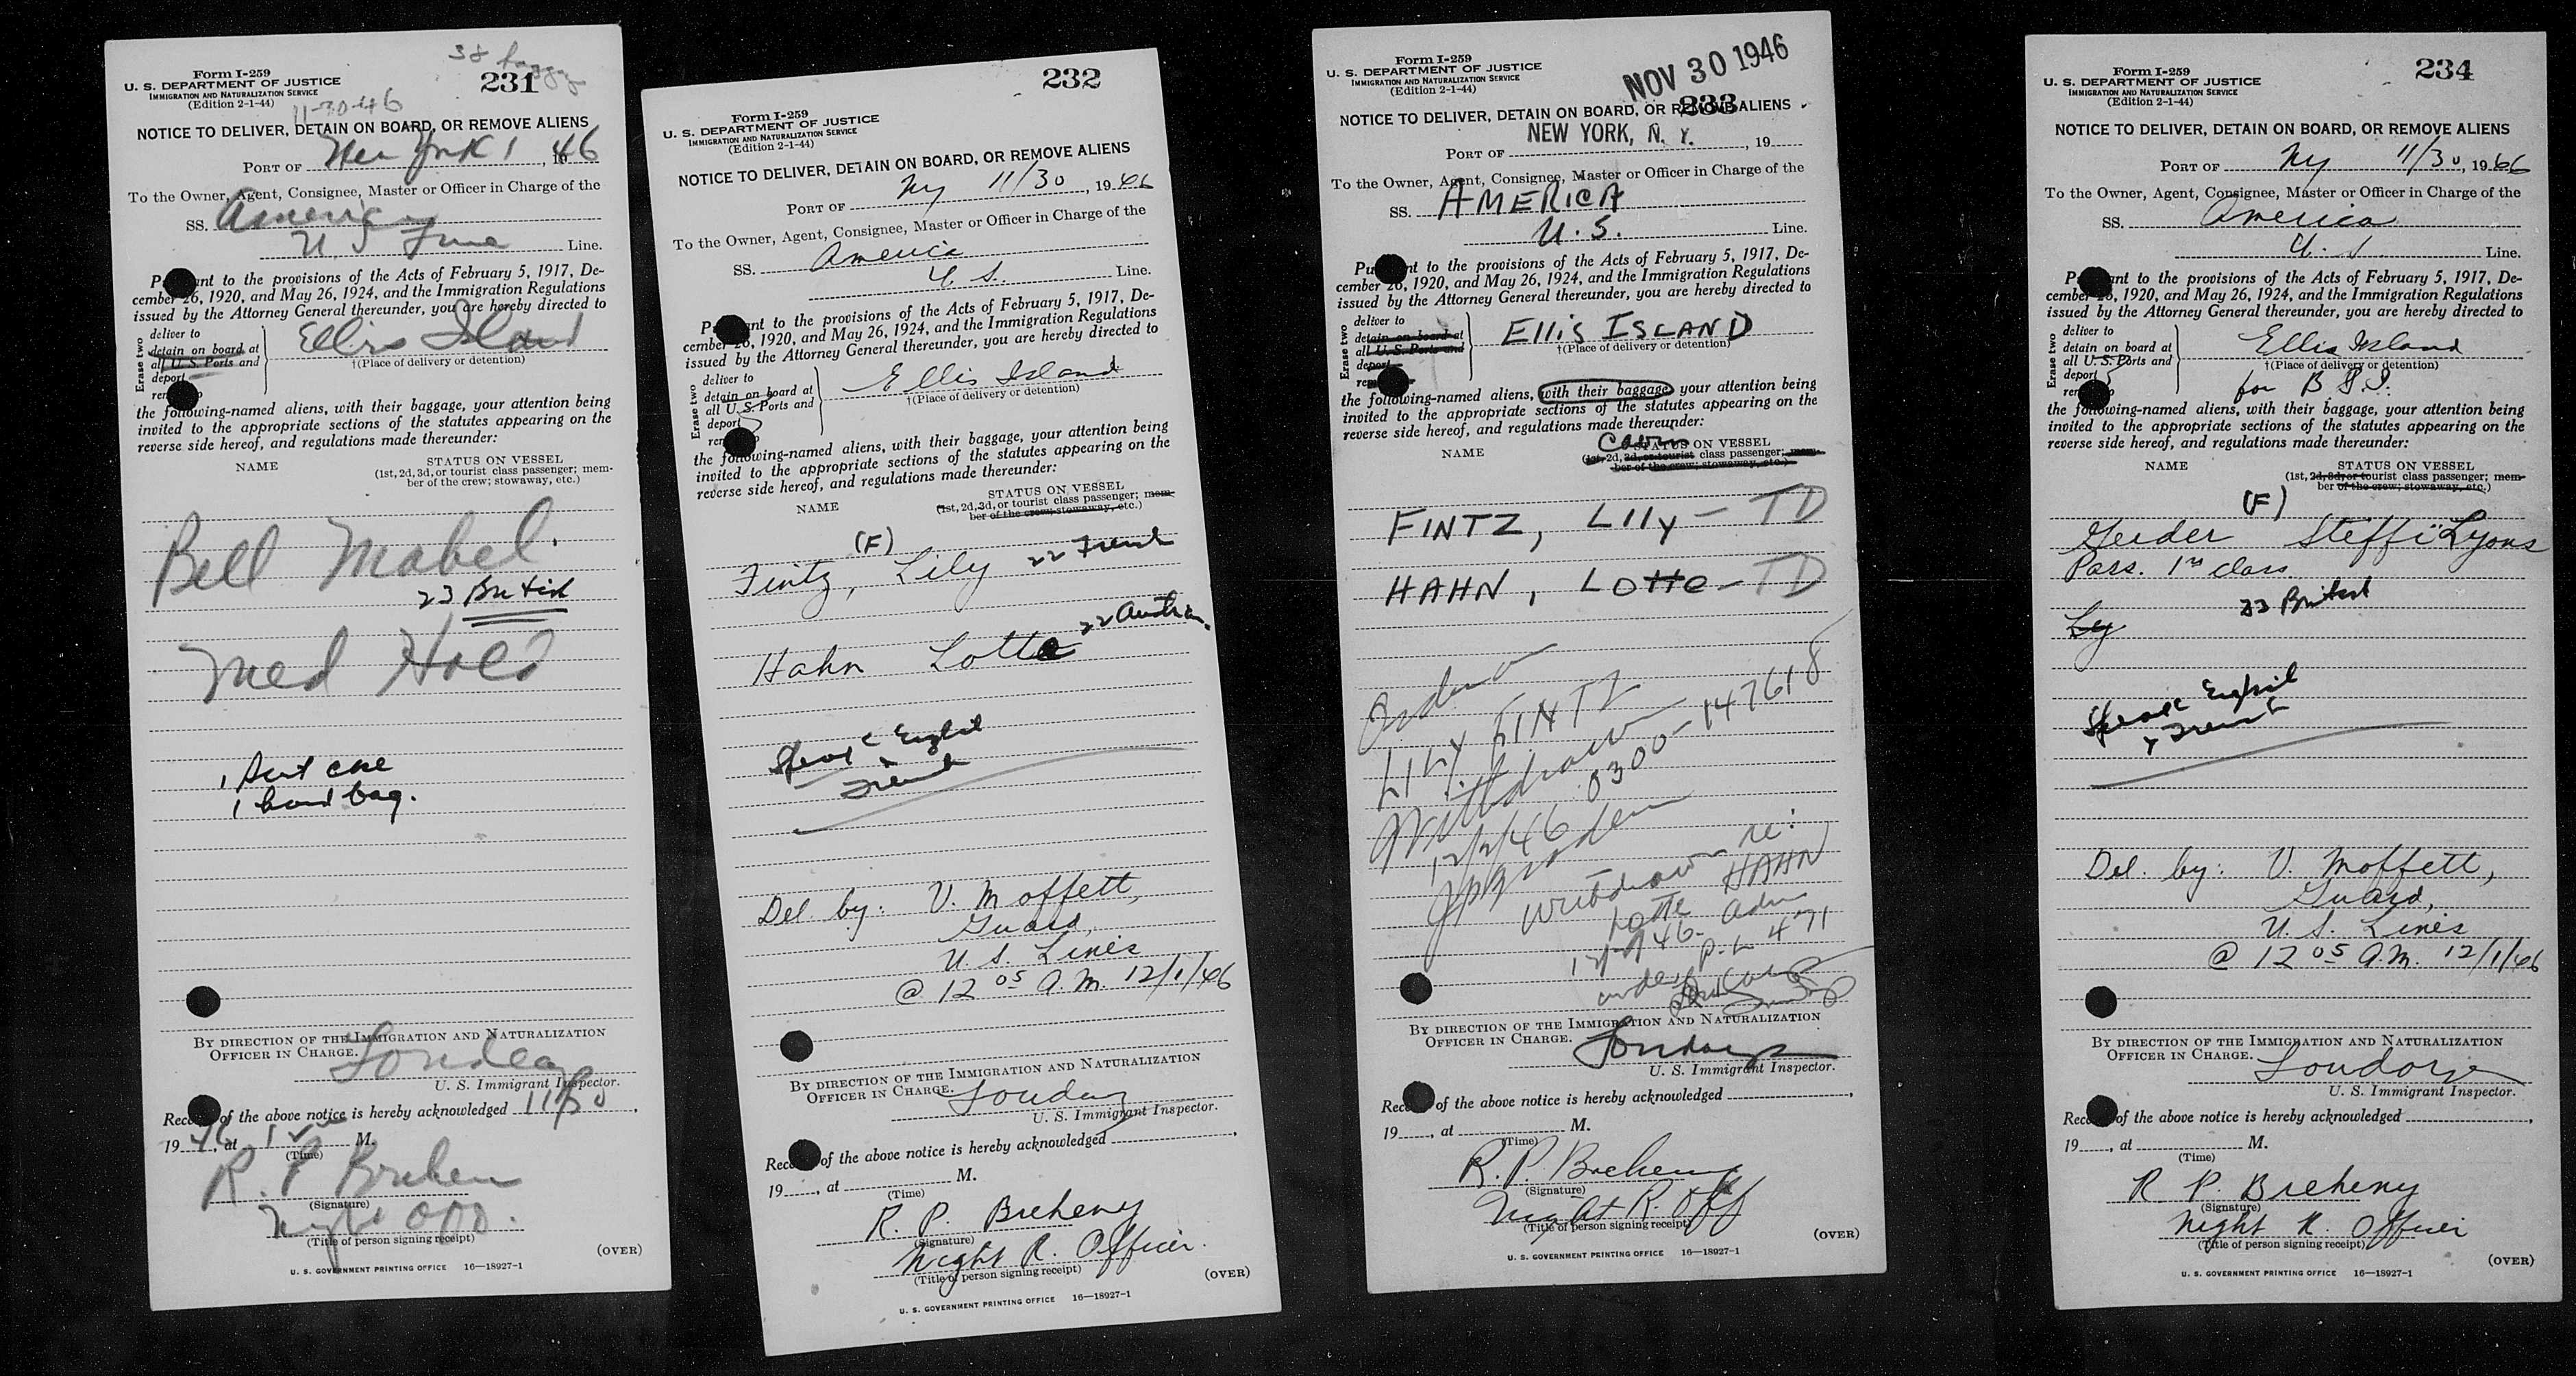 38 baggage
Form I-259
231
U. S. DEPARTMENT OF JUSTICE
IMMIGRATION AND NATURALIZATION SERVICE
(Edition 2-1-44)
11-30-46
NOTICE TO DELIVER, DETAIN ON BOARD, OR REMOVE ALIENS
PORT OF New York 1, 1946
To the Owner, Agent, Consignee, Master or Officer in Charge of the
SS. America
U S Line Line.
P nt to the provisions of the Acts of February 5, 1917, De-
cember 26, 1920, and May 26, 1924, and the Immigration Regulations
issued by the Attorney General thereunder, you are hereby directed to
Erase two
deliver to
detain on board at
all U. S. Ports and
deport
rem
Ellis Island
†(Place of delivery or detention)
the following-named aliens, with their baggage, your attention being
invited to the appropriate sections of the statutes appearing on the
reverse side hereof, and regulations made thereunder:
NAME
STATUS ON VESSEL
(1st, 2d, 3d, or tourist class passenger; mem-
ber of the crew; stowaway, etc.)
Bell Mabel.
23 British
Med Hold
1 suit case
1 hand bag.
BY DIRECTION OF THE IMMIGRATION AND NATURALIZATION
OFFICER IN CHARGE.
U. S. Immigrant Inspector.
Rece of the above notice is hereby acknowledged 11/30,
1946, at 1 M.
(Time)
R. P Breheny
(Signature)
Night
(Title of person signing receipt)
(OVER)
U. S. GOVERNMENT PRINTING OFFICE 16—18927-1
232
Form I-259
U. S. DEPARTMENT OF JUSTICE
IMMIGRATION AND NATURALIZATION SERVICE
(Edition 2-1-44)
NOTICE TO DELIVER, DETAIN ON BOARD, OR REMOVE ALIENS
PORT OF Ny 11/30, 1946
To the Owner, Agent, Consignee, Master or Officer in Charge of the
SS. America
U. S. Line.
P nt to the provisions of the Acts of February 5, 1917, De-
cember 26, 1920, and May 26, 1924, and the Immigration Regulations
issued by the Attorney General thereunder, you are hereby directed to
Erase two
deliver to
detain on board at
all U. S. Ports and
deport
rem
Ellis Island
†(Place of delivery or detention)
the following-named aliens, with their baggage, your attention being
invited to the appropriate sections of the statutes appearing on the
reverse side hereof, and regulations made thereunder:
NAME
STATUS ON VESSEL
(1st, 2d, 3d, or tourist class passenger; mem-
ber of the crew; stowaway, etc.)
(F)
Fintz, Lily 22 French
Hahn Lotte 22 Austrian.
Speak English
& French
Del by: V. Moffett,
Guard,
U. S. Lines
@ 12 05 A.M. 12/1/46
BY DIRECTION OF THE IMMIGRATION AND NATURALIZATION
OFFICER IN CHARGE.
U. S. Immigrant Inspector.
Rece of the above notice is hereby acknowledged ,
19 , at M.
(Time)
R. P. Breheny
(Signature)
Night R. Officer.
(Title of person signing receipt)
(OVER)
U. S. GOVERNMENT PRINTING OFFICE 16—18927-1
Form I-259
U. S. DEPARTMENT OF JUSTICE
IMMIGRATION AND NATURALIZATION SERVICE
(Edition 2-1-44)
NOV 30 1946
233
NOTICE TO DELIVER, DETAIN ON BOARD, OR REMOVE ALIENS
PORT OF NEW YORK, N. Y. , 19
To the Owner, Agent, Consignee, Master or Officer in Charge of the
SS. AMERICA
U. S. Line.
Pu nt to the provisions of the Acts of February 5, 1917, De-
cember 26, 1920, and May 26, 1924, and the Immigration Regulations
issued by the Attorney General thereunder, you are hereby directed to
Erase two
deliver to
detain on board at
all U. S. Ports and
deport
rem
ELLIS ISLAND
†(Place of delivery or detention)
the following-named aliens, with their baggage, your attention being
invited to the appropriate sections of the statutes appearing on the
reverse side hereof, and regulations made thereunder:
NAME
Cabin
STATUS ON VESSEL
(1st, 2d, 3d, or tourist class passenger; mem-
ber of the crew; stowaway, etc.)
FINTZ, Lilly - TD
HAHN, LOTTE - TD
Order
LILY FINTZ
Withdrawn
12/2/46 0300-147618
Order
withdrawn re:
Lotte HAHN
12/2/46 - adm
under P. L 471
BY DIRECTION OF THE IMMIGRATION AND NATURALIZATION
OFFICER IN CHARGE.
U. S. Immigrant Inspector.
Rece of the above notice is hereby acknowledged ,
19 , at M.
(Time)
R. P. Breheny
(Signature)
Night R. Off
(Title of person signing receipt)
(OVER)
U. S. GOVERNMENT PRINTING OFFICE 16—18927-1
Form I-259
234
U. S. DEPARTMENT OF JUSTICE
IMMIGRATION AND NATURALIZATION SERVICE
(Edition 2-1-44)
NOTICE TO DELIVER, DETAIN ON BOARD, OR REMOVE ALIENS
PORT OF Ny 11/30, 1946
To the Owner, Agent, Consignee, Master or Officer in Charge of the
SS. America
U. S. Line.
P nt to the provisions of the Acts of February 5, 1917, De-
cember 26, 1920, and May 26, 1924, and the Immigration Regulations
issued by the Attorney General thereunder, you are hereby directed to
Erase two
deliver to
detain on board at
all U. S. Ports and
deport
rem
Ellis Island
†(Place of delivery or detention)
for B S I.
the following-named aliens, with their baggage, your attention being
invited to the appropriate sections of the statutes appearing on the
reverse side hereof, and regulations made thereunder:
NAME
STATUS ON VESSEL
(1st, 2d, 3d, or tourist class passenger; mem-
ber of the crew; stowaway, etc.)
(F)
Steffi Lyons
Pass. 1st class
23 British
Ly
Speak English
& French
Del. by: V. Moffett,
Guard,
U. S. Lines
@ 12 05 A.M. 12/1/46
BY DIRECTION OF THE IMMIGRATION AND NATURALIZATION
OFFICER IN CHARGE.
U. S. Immigrant Inspector.
Rece of the above notice is hereby acknowledged ,
19 , at M.
(Time)
R. P. Breheny
(Signature)
Night R. Officer
(Title of person signing receipt)
(OVER)
U. S. GOVERNMENT PRINTING OFFICE 16—18927-1